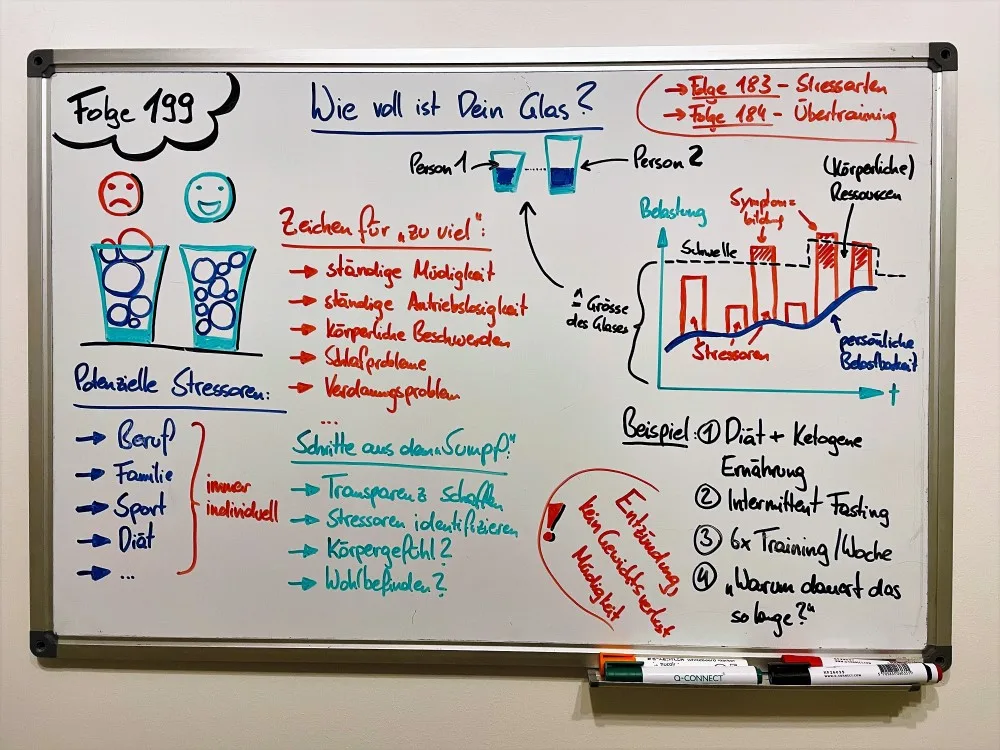 Folge 199
Wie voll ist Dein Glas?
→ Folge 183 - Stressarten
→ Folge 184 - Übertraining
Person 1
Person 2
Zeichen für „zu viel":
→ ständige Müdigkeit
→ ständige Antriebslosigkeit
→ körperliche Beschwerden
→ Schlafprobleme
→ Verdauungsproblem
...
≙ Grösse
des Glases
Belastung
Schwelle
Symptom=
bildung
(Körperliche)
Ressourcen
Stressoren
persönliche
Belastbarkeit
t
Potenzielle Stressoren:
→ Beruf
→ Familie
→ Sport
→ Diät
→ ...
immer
individuell
Schritte aus dem „Sumpf":
→ Transparenz schaffen
→ Stressoren identifizieren
→ Körpergefühl?
→ Wohlbefinden?
Beispiel: ① Diät + Ketogene
Ernährung
② Intermittent Fasting
③ 6x Training/Woche
④ „Warum dauert das
so lange?"
!
Entzündung,
kein Gewichtsverlust
Müdigkeit
Q-CONNECT